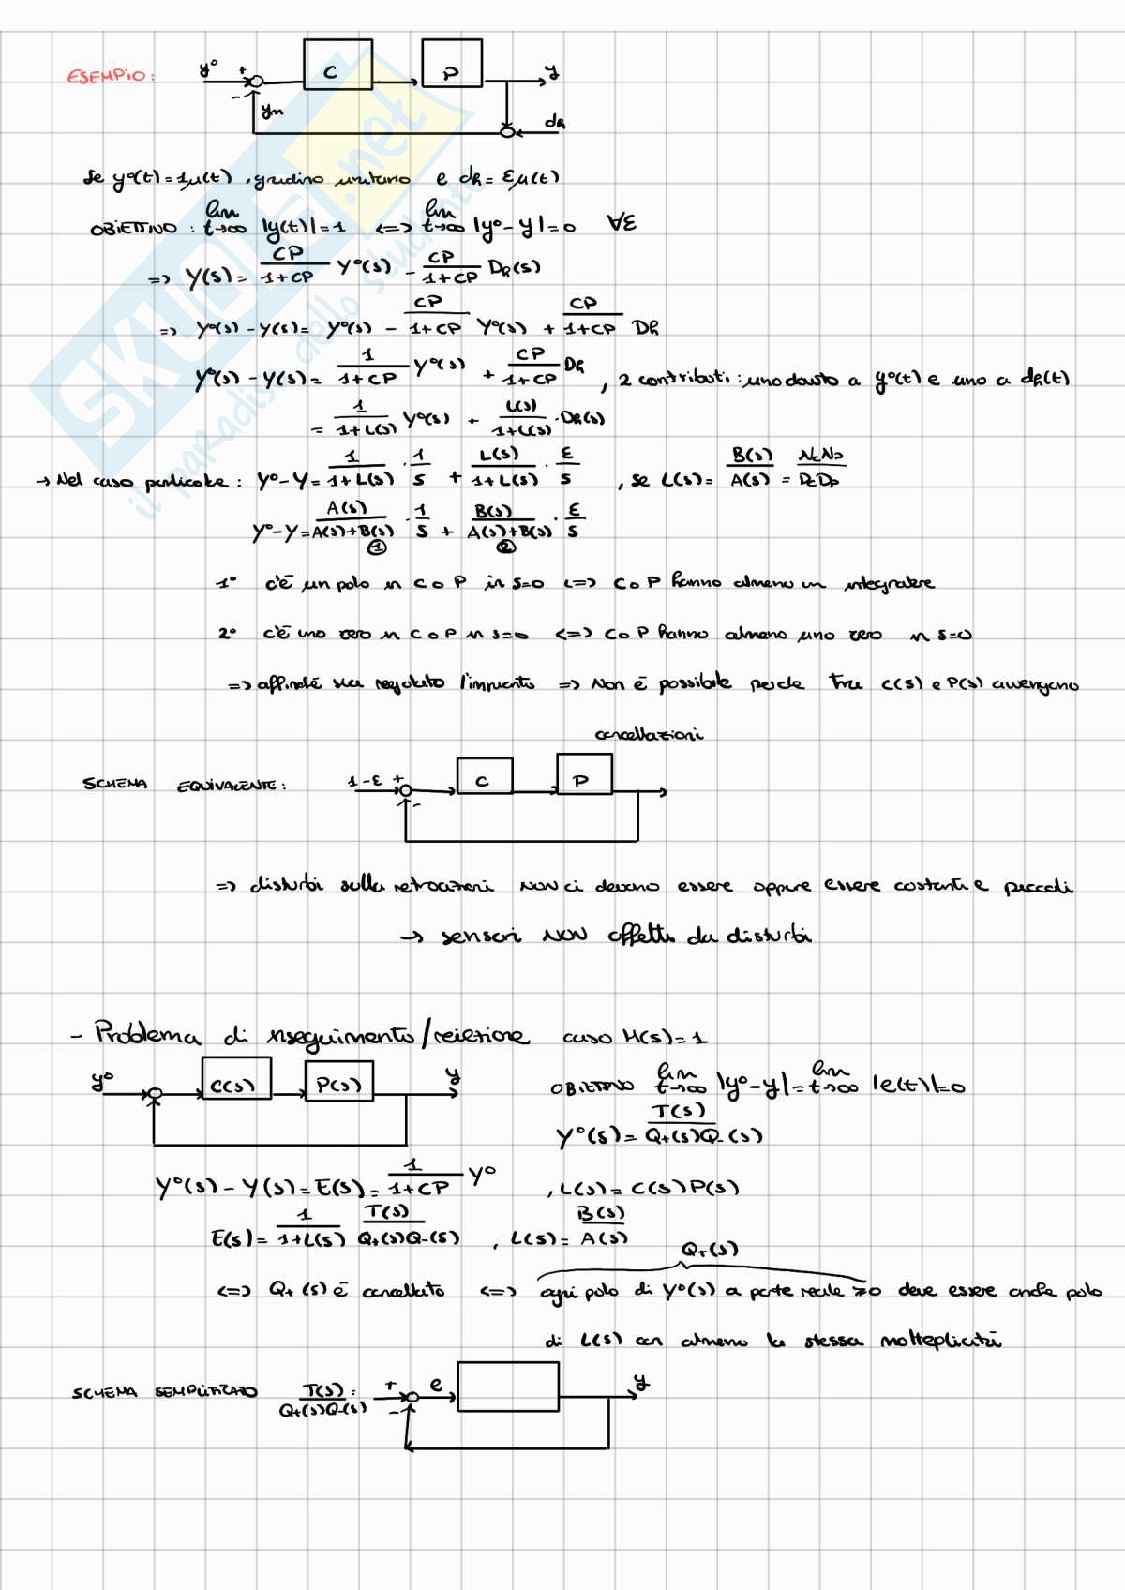 ESEMPIO: y° + C P y
- yn
dR
Se y°(t) = 1μ(t), gradino unitario e dR = εμ(t)
OBIETTIVO: lim t→∞ |y(t)| = 1 <=> lim t→∞ |y°-y| = 0 ∀ε
=> Y(s) = CP/(1+CP) Y°(s) - CP/(1+CP) DR(s)
=> Y°(s) - Y(s) = Y°(s) - CP/(1+CP) Y°(s) + CP/(1+CP) DR
Y°(s) - Y(s) = 1/(1+CP) Y°(s) + CP/(1+CP) DR, 2 contributi: uno dovuto a y°(t) e uno a dR(t)
= 1/(1+L(s)) Y°(s) + L(s)/(1+L(s)) · DR(s)
→ Nel caso particolare: Y°-Y = 1/(1+L(s)) · 1/s + L(s)/(1+L(s)) · ε/s, se L(s) = B(s)/A(s) = NcNp/DcDp
Y°-Y = A(s)/(A(s)+B(s)) · 1/s + B(s)/(A(s)+B(s)) · ε/s
① ②
1° c'è un polo in C o P in s=0 <=> C o P hanno almeno un integratore
2° c'è uno zero in C o P in s=0 <=> C o P hanno almeno uno zero in s=0
=> affinché sia regolato l'impianto => Non è possibile perché tra C(s) e P(s) avvengono
cancellazioni
SCHEMA EQUIVALENTE: 1-ε + - C P
=> disturbi sulla retroazioni NON ci devono essere oppure essere costanti e piccoli
→ sensori NON affetti da disturbi
- Problema di inseguimento/reiezione caso H(s)=1
y° C(s) P(s) y
OBIETTIVO lim t→∞ |y°-y| = lim t→∞ |e(t)|=0
Y°(s) = T(s)/Q+(s)Q-(s)
Y°(s) - Y(s) = E(s) = 1/(1+CP) Y°, L(s) = C(s)P(s)
E(s) = 1/(1+L(s)) T(s)/Q+(s)Q-(s), L(s) = B(s)/A(s)
Q+(s)
<=> Q+(s) è cancellato <=> ogni polo di Y°(s) a parte reale ≥0 deve essere anche polo
di L(s) con almeno la stessa molteplicità
SCHEMA SEMPLIFICATO T(s)/Q+(s)Q-(s): + - e y
SKUOLA.net
il paradiso dello studente